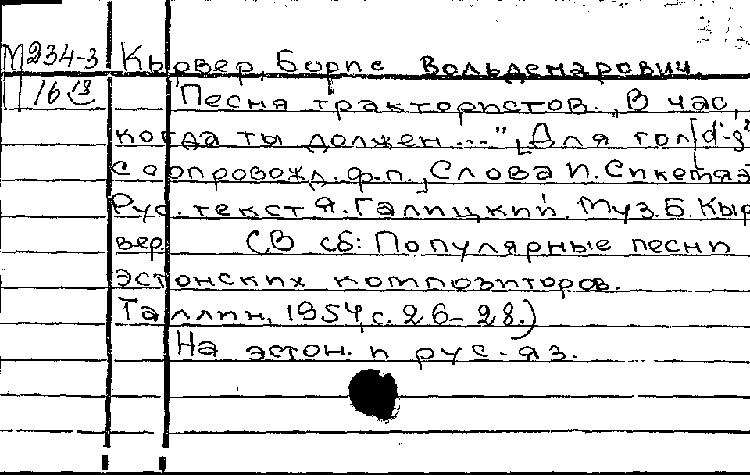 М234-3 Кырвер, Борис Вольдемарович.
16 13 Песня трактористов. „В час,
когда ты должен..." Для гол[d'-g²
с сопровожд. ф.п. Слова И. Сикемяэ
Рус. текст Я. Галицкий. Муз. Б. Кыр
вер. (В сб: Популярные песни
эстонских композиторов.
Таллин, 1954, с. 26-28.)
На эстон. и рус. яз.